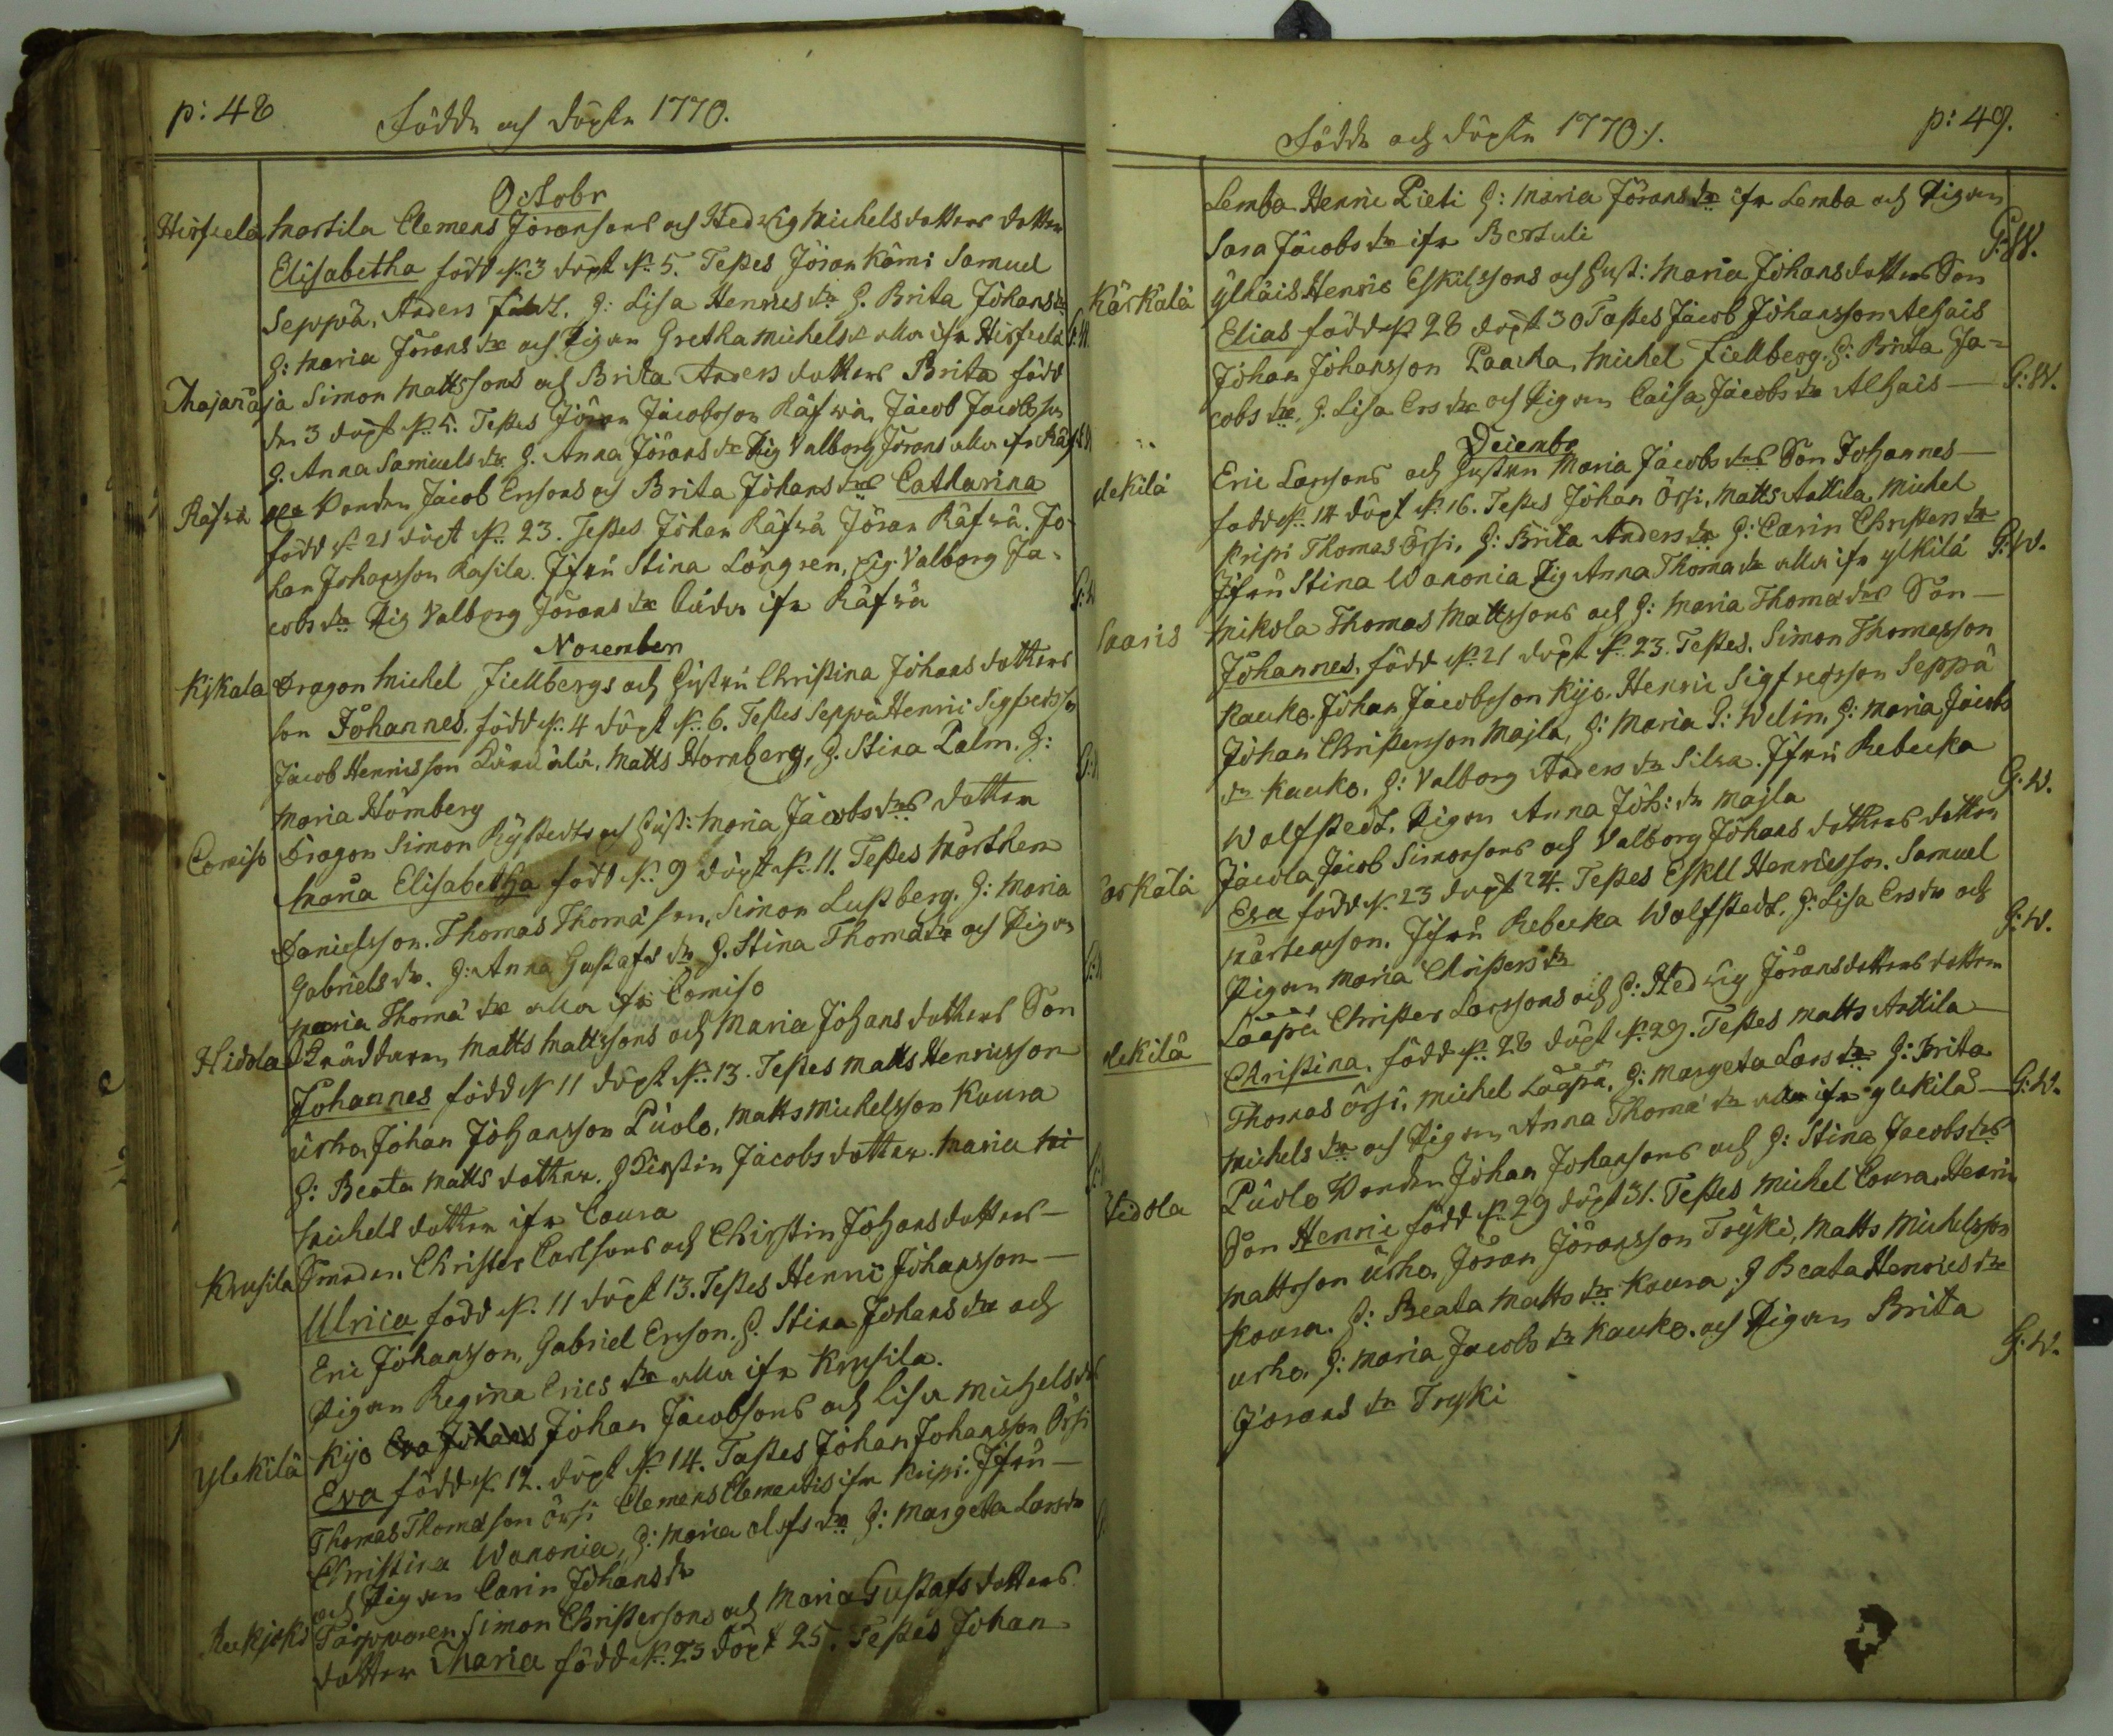 p: 48
Födde och döpte 1770.
Octobr
Hirsiela Martila Clemens Jöransons och Hedwig Michelsdotters dotter
Elisabetha född d. 3 döpt d. 5. Testes Jöran Kämi Samuel
Seppä, Anders G: Lisa Henricsdr G. Brita Johansdr
G: Maria Jöransdr och Pigan Gretha Michelsd alla ifr Hirsiela
Simon Mattssons och Brita Andersdotters Brita född
den 3 döpt d. 5. Testes Jöran Jacobsson Räfwä, Jacob Jacobsson
G. Anna Samuelsdr G. Anna Jöransdr Pig Valborg Jörans alla ifr Räf
Räfwä Bonden Jacob Ersons och Brita Johansdrs Catharina
född d. 21 döpt d. 23. Testes Johan Räfwä Jöran Räfwä. Jo-
han Johansson Kasila. Jfru Stina Löngren, Pig. Valborg Ja-
cobsdr Pig Valborg Jöransdr båda ifr Räfwä
November
Kijkala Dragon Michel Fiellbergs och Hustru Christina Johansdotters
son Johannes född d. 4 döpt d. 6. Testes Seppä Henric Sigfredsson
Jacob Henricsson Matts Hornberg, G. Stina Palm. G:
Maria Hömberg
Comiso Dragon Simon Rystedts och Hust: Maria Jacobsdrs dotter
Maria Elisabetha född d. 9 döpt d. 11. Testes Mårthen
Danielsson. Thomas Thomasson, Simon Lustberg. G: Maria
Gabrielsdr. G: Anna Gustafsdr G. Stina Thomadr och Pigan
Maria Thomadr alla ifr Comiso
Hidola Skräddaren Matts Mattssons och Maria Johansdotters Son
Johannes född d 11 döpt d. 13. Testes Matts Henricsson
urho, Johan Johansson Puolo, Matts Michelsson Koura
G: Beata Mattsdotter. G Kirstin Jacobsdotter. Maria Mi
Michelsdotter ifr Coura
Krusila Smeden Christer Carlsons och Chirstin Johansdotters
Ulrica född d. 11 döpt 13. Testes Henric Johansson
Eric Johansson, Gabriel Erson. G. Stina Johansdr och
Pigan Regina Ericsdr alla ifr Krusila.
Ylekilä Kijo Johan Jacobsons och Lisa Michelsdrs
Eva född d. 12. döpt d. 14. Testes Johan Johansson Örsi
Thomas Thomasson Örsi Clemens Clemetis ifr Kripi. Jfru
Christina Wanonia, G: Maria Olofsdr G: Margeta Larsdr
och Pigan Carin Johansdr
Simon Christersons och Maria Gustafsdotters
dotter Maria född d. 23 döpt 25. Testes Johan
Födde och döpte 1770.
p: 49.
Lemba Henric Pieti G: Maria Jöransdr ifr Lemba och Pigan
Sara Jacobsdr ifr Bertuli G: W.
Kärkälä Ylhäis Henric Eskilssons och Hust: Maria Johansdotters Son
Elias född d 28 döpt 30 Testes Jacob Johansson Alhais
Johan Johansson Paacka, Michel Fiellberg. G: Brita Ja-
cobsdr, G. Lisa Ersdr och Pigan Caisa Jacobsdr Alhais G: W.
Decembr
lekilä Eric Larsons och Hustru Maria Jacobsdrs Son Johannes
född d. 14 döpt d. 16. Testes Johan Örsi, Matts Anttila, Michel
Kripi Thomas Örsi, G: Brita Andersdr G: Carin Christersdr
Jfru Stina Wanonia Pig Anna Thomadr alla ifr ylkilä G: W.
Saaris Mikola Thomas Mattssons och G: Maria Thomædrs Son
Johannes, född d. 21 döpt d. 23. Testes, Simon Thomasson
Kauko. Johan Jacobsson Kijo. Henric Sigfredsson Seppä
Johan Christersson Majla, G: Maria J: Welin, G: Maria Jacobs
dr Kauko, G: Valborg Andersdr Silva. Jfru Rebecka
Wolfstedt, Pigan Anna Joh: dr Majla G: W.
Kärkälä Jacob Simonsons och Valborg Johansdotters dotter
Eva född d. 23 döpt 24. Testes Eskell Henricsson, Samuel
Mårtenson. Jfru Rebecka Wolfstedt, G: Lisa Ersdr och
Pigan Maria Christersdr G: W.
lekilä Laapa Christer Larssons och G: Hedwig Jöransdotters dotter
Christina, född d. 28 döpt d. 29. Testes Matts Anttila
Thomas Örsi, Michel Lååpa, G: Margeta Larsdr G: Brita
Michelsdr och Pigan Anna Thomadr alla ifr ylekilä G: W.
Hidola Puolo Bonden Johan Johansons och G: Stina Jacobsdrs
Son Henric född d. 29 döpt 31. Testes Michel Coura, Henric
Mattsson urho, Jöran Jöransson Tryki, Matts Michelsson
Koura. G: Beata Mattsdr Koura. G Beata Henricsdr
urho, G: Maria Jacobsdr Kauko. och Pigan Brita
Jöransdr Tryki G: W.